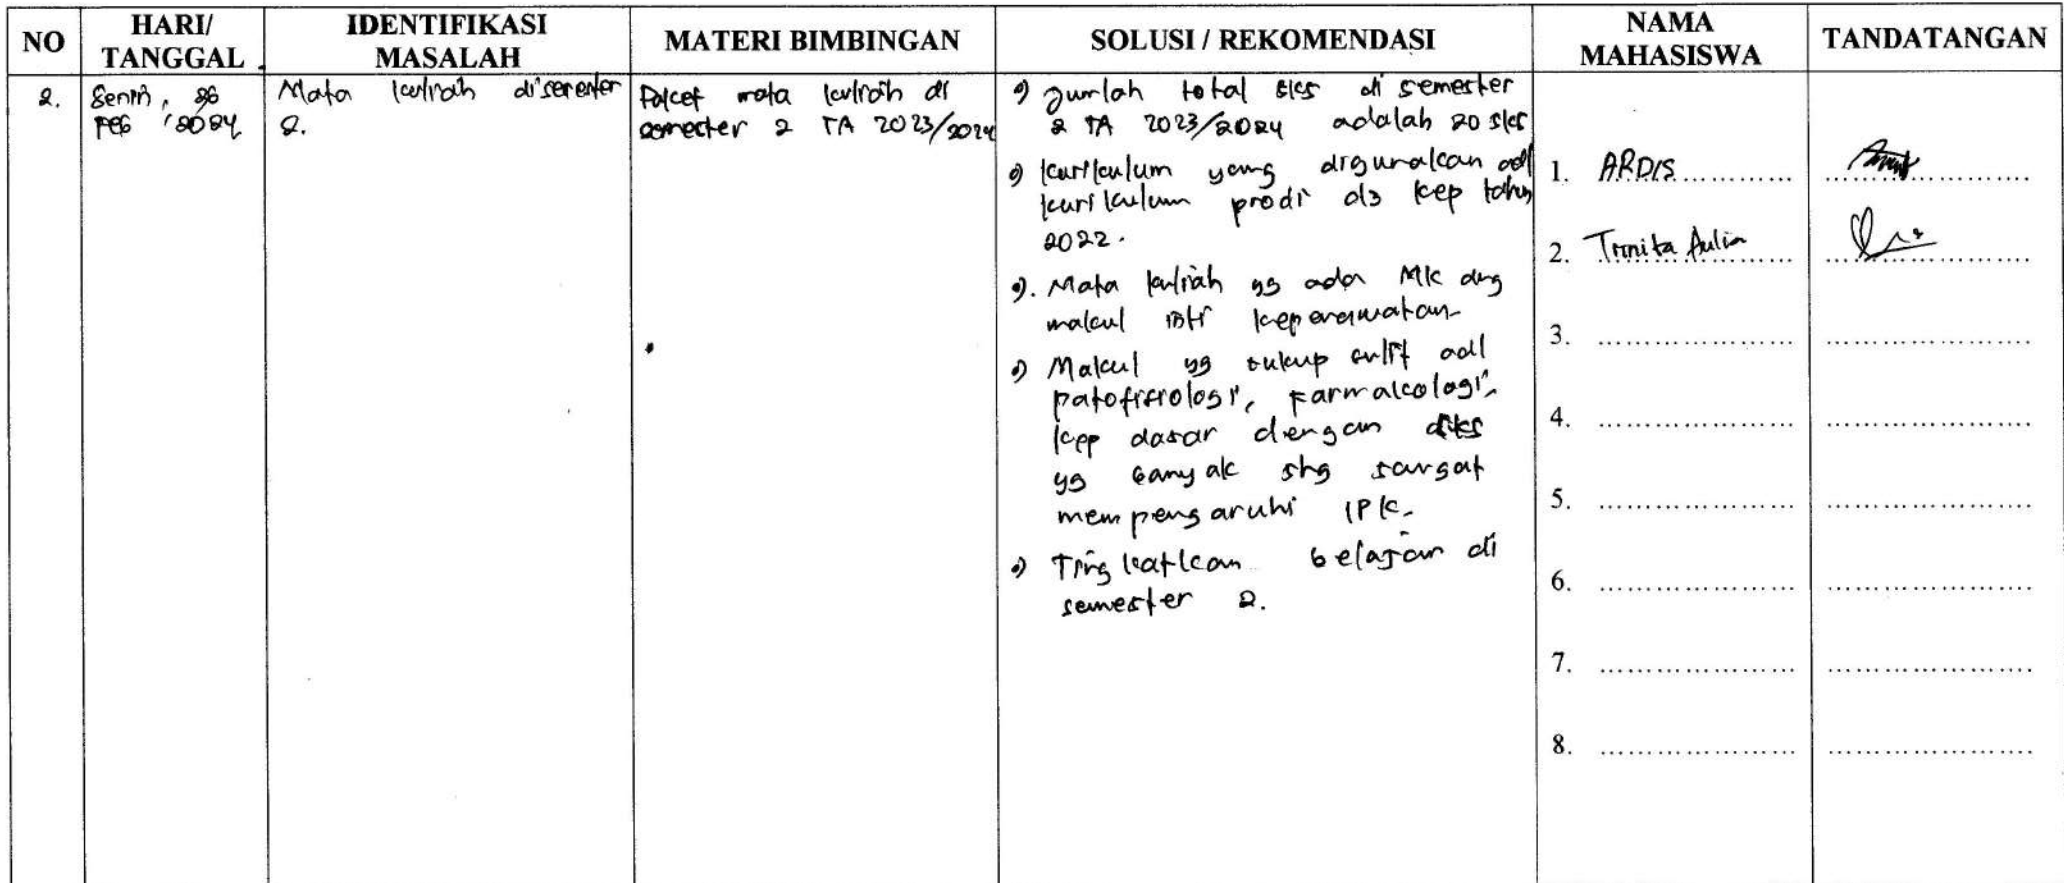 NO
HARI/
TANGGAL
IDENTIFIKASI
MASALAH
MATERI BIMBINGAN
SOLUSI / REKOMENDASI
NAMA
MAHASISWA
TANDATANGAN
2.
Senin, 26
Feb '2024
Mata kuliah disemester
2.
Paket mata kuliah di
semester 2 TA 2023/2024
Jumlah total sks di semester
2 TA 2023/2024 adalah 20 sks
kurikulum yang digunakan adl
kurikulum prodi d3 kep tahun
2022.
Mata kuliah yg ada MK dng
makul inti keperawatan
Makul yg cukup sulit adl
patofisiologi, Farmakologi,
kep dasar dengan sks
yg banyak shg sangat
mempengaruhi IPK.
Tingkatkan belajar di
semester 2.
1. ARDIS
2. Trinita Aulia
3.
4.
5.
6.
7.
8.